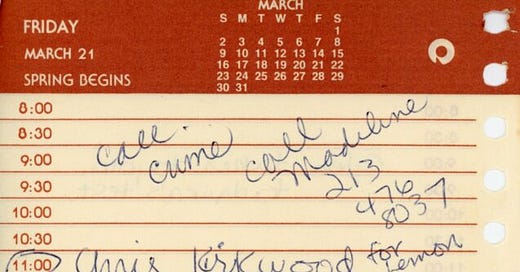 FRIDAY
MARCH 21
SPRING BEGINS
MARCH
S M T W T F S
1
2 3 4 5 6 7 8
9 10 11 12 13 14 15
16 17 18 19 20 21 22
23 24 25 26 27 28 29
30 31
8:00
8:30
9:00
9:30
10:00
10:30
11:00
call.
crime call
Madeline
213
476
8037
Chris Kirkwood for
Lemon